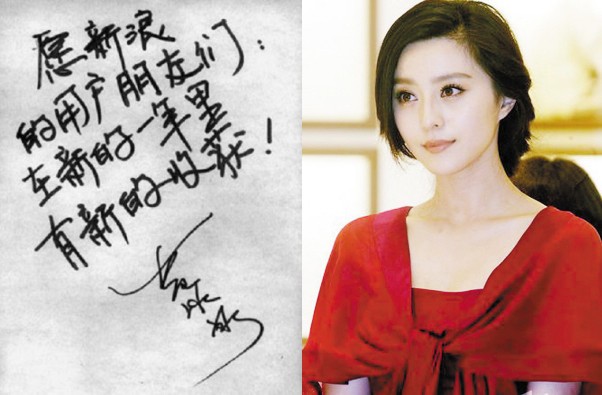 愿新浪
的用户朋友们：
在新的一年里
有新的收获！